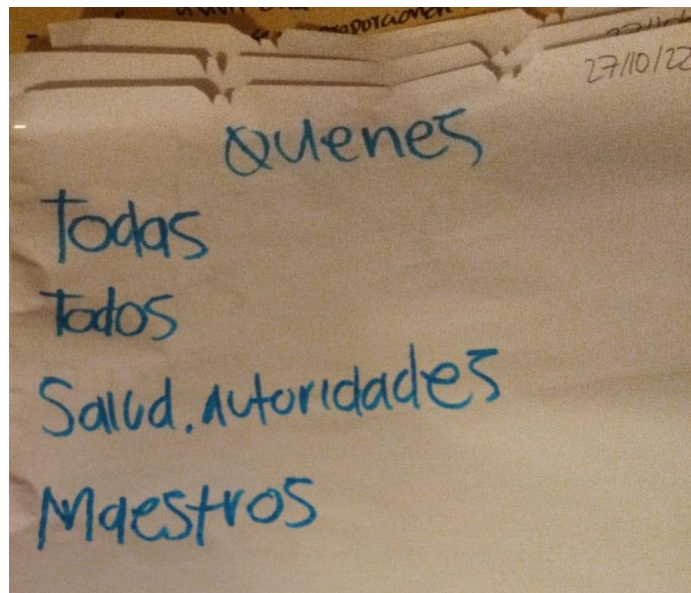 27/10/22
Quenes
Todas
Todos
Salud. Autoridades
Maestros